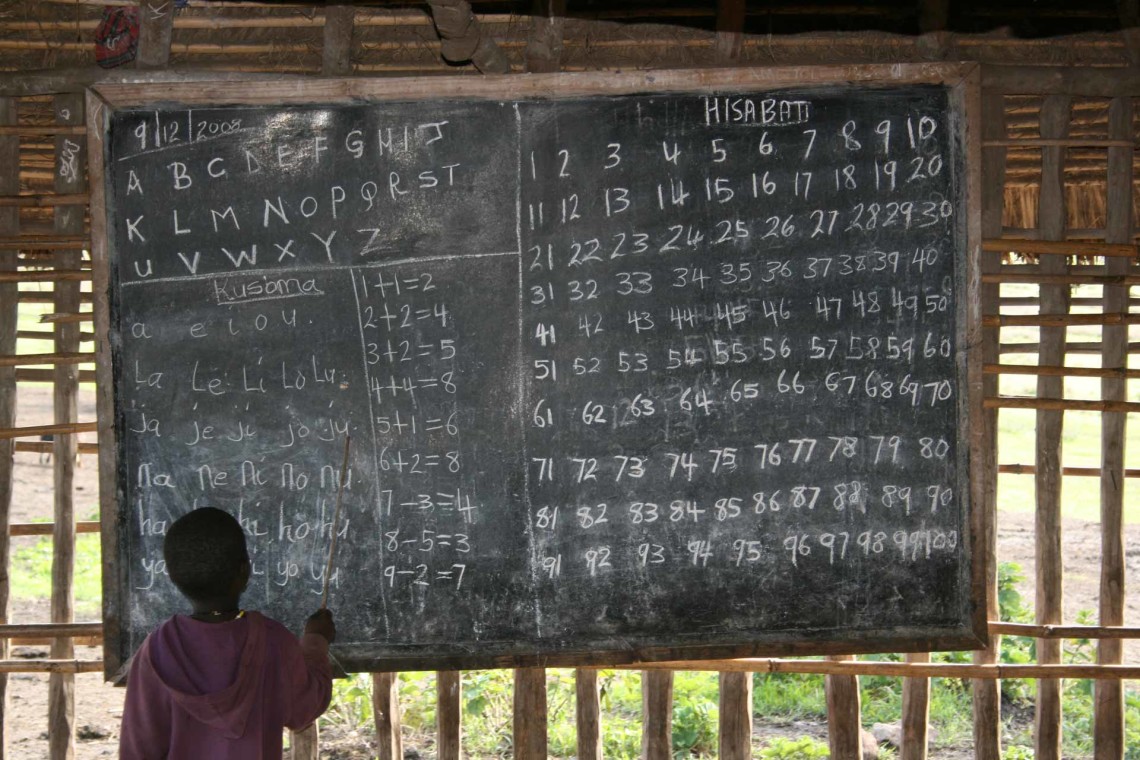 9/12/2008
A B C D E F G H I J
K L M N O P Q R S T
U V W X Y Z
Kusoma
a e i o u.
La Le Li Lo Lu.
ja je ji jo ju.
na ne ni no nu.
ha hi ho hu
ya yo yu
1+1=2
2+2=4
3+2=5
4+4=8
5+1=6
6+2=8
7-3=4
8-5=3
9-2=7
HISABATI
1 2 3 4 5 6 7 8 9 10
11 12 13 14 15 16 17 18 19 20
21 22 23 24 25 26 27 28 29 30
31 32 33 34 35 36 37 38 39 40
41 42 43 44 45 46 47 48 49 50
51 52 53 54 55 56 57 58 59 60
61 62 63 64 65 66 67 68 69 70
71 72 73 74 75 76 77 78 79 80
81 82 83 84 85 86 87 88 89 90
91 92 93 94 95 96 97 98 99 100